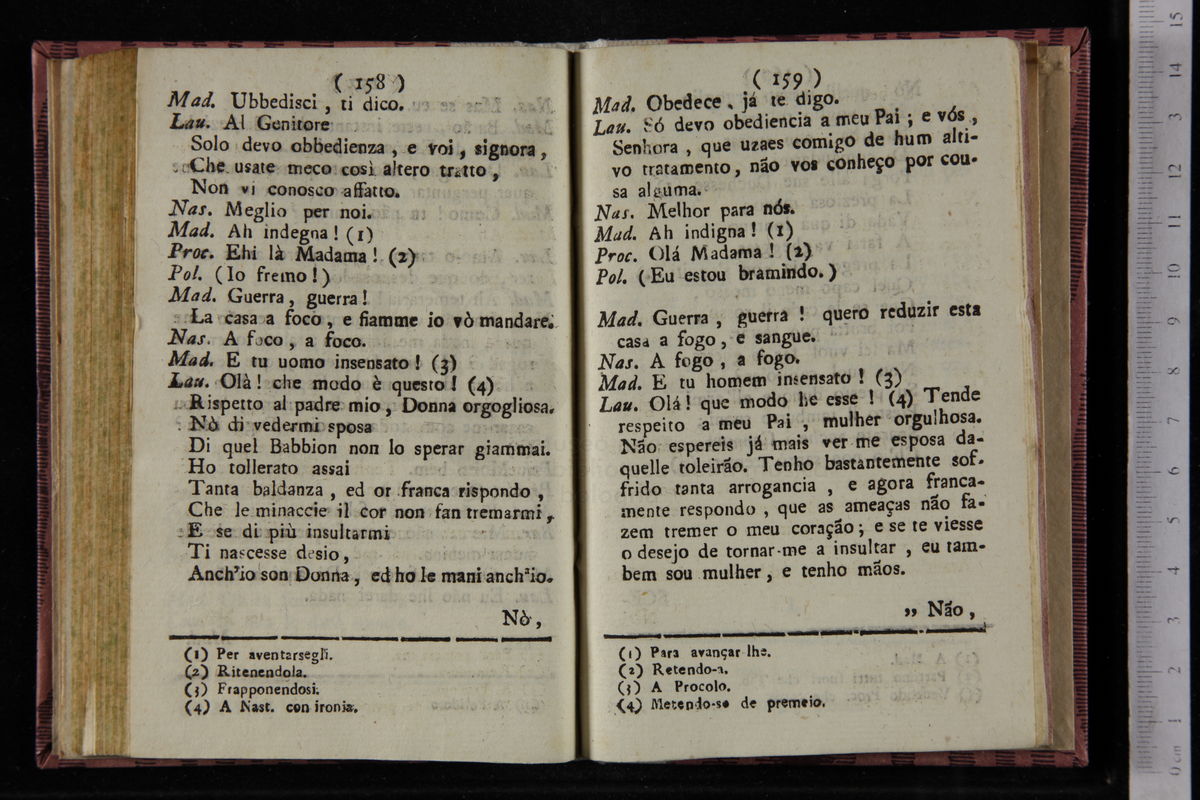 ( 158 )
Mad. Ubbedisci, ti dico.
Lau. Al Genitore
Solo devo obbedienza, e voi, signora,
Che usate meco così altero tratto,
Non vi conosco affatto.
Nas. Meglio per noi.
Mad. Ah indegna! (1)
Proc. Ehi là Madama! (2)
Pol. (Io fremo!)
Mad. Guerra, guerra!
La casa a foco, e fiamme io vò mandare.
Nas. A foco, a foco.
Mad. E tu uomo insensato! (3)
Lau. Olà! che modo è questo! (4)
Rispetto al padre mio, Donna orgogliosa.
Nò di vedermi sposa
Di quel Babbion non lo sperar giammai.
Ho tollerato assai
Tanta baldanza, ed or franca rispondo,
Che le minaccie il cor non fan tremarmi,
E se di più insultarmi
Ti nascesse desio,
Anch'io son Donna, ed ho le mani anch'io.
Nò,
(1) Per aventarsegli.
(2) Ritenendola.
(3) Frapponendosi.
(4) A Nast. con ironia.
( 159 )
Mad. Obedece, já te digo.
Lau. Só devo obediencia a meu Pai; e vós,
Senhora, que uzaes comigo de hum alti-
vo tratamento, não vos conheço por cou-
sa alguma.
Nas. Melhor para nós.
Mad. Ah indigna! (1)
Proc. Olá Madama! (2)
Pol. (Eu estou bramindo.)
Mad. Guerra, guerra! quero reduzir esta
casa a fogo, e sangue.
Nas. A fogo, a fogo.
Mad. E tu homem insensato! (3)
Lau. Olá! que modo he esse! (4) Tende
respeito a meu Pai, mulher orgulhosa.
Não espereis já mais ver me esposa da-
quelle toleirão. Tenho bastantemente sof-
frido tanta arrogancia, e agora franca-
mente respondo, que as ameaças não fa-
zem tremer o meu coração; e se te viesse
o desejo de tornar-me a insultar, eu tam-
bem sou mulher, e tenho mãos.
„ Não,
(1) Para avançar lhe.
(2) Retendo-a.
(3) A Procolo.
(4) Metendo-se de premeio.
0 cm 1 2 3 4 5 6 7 8 9 10 11 12 13 14 15